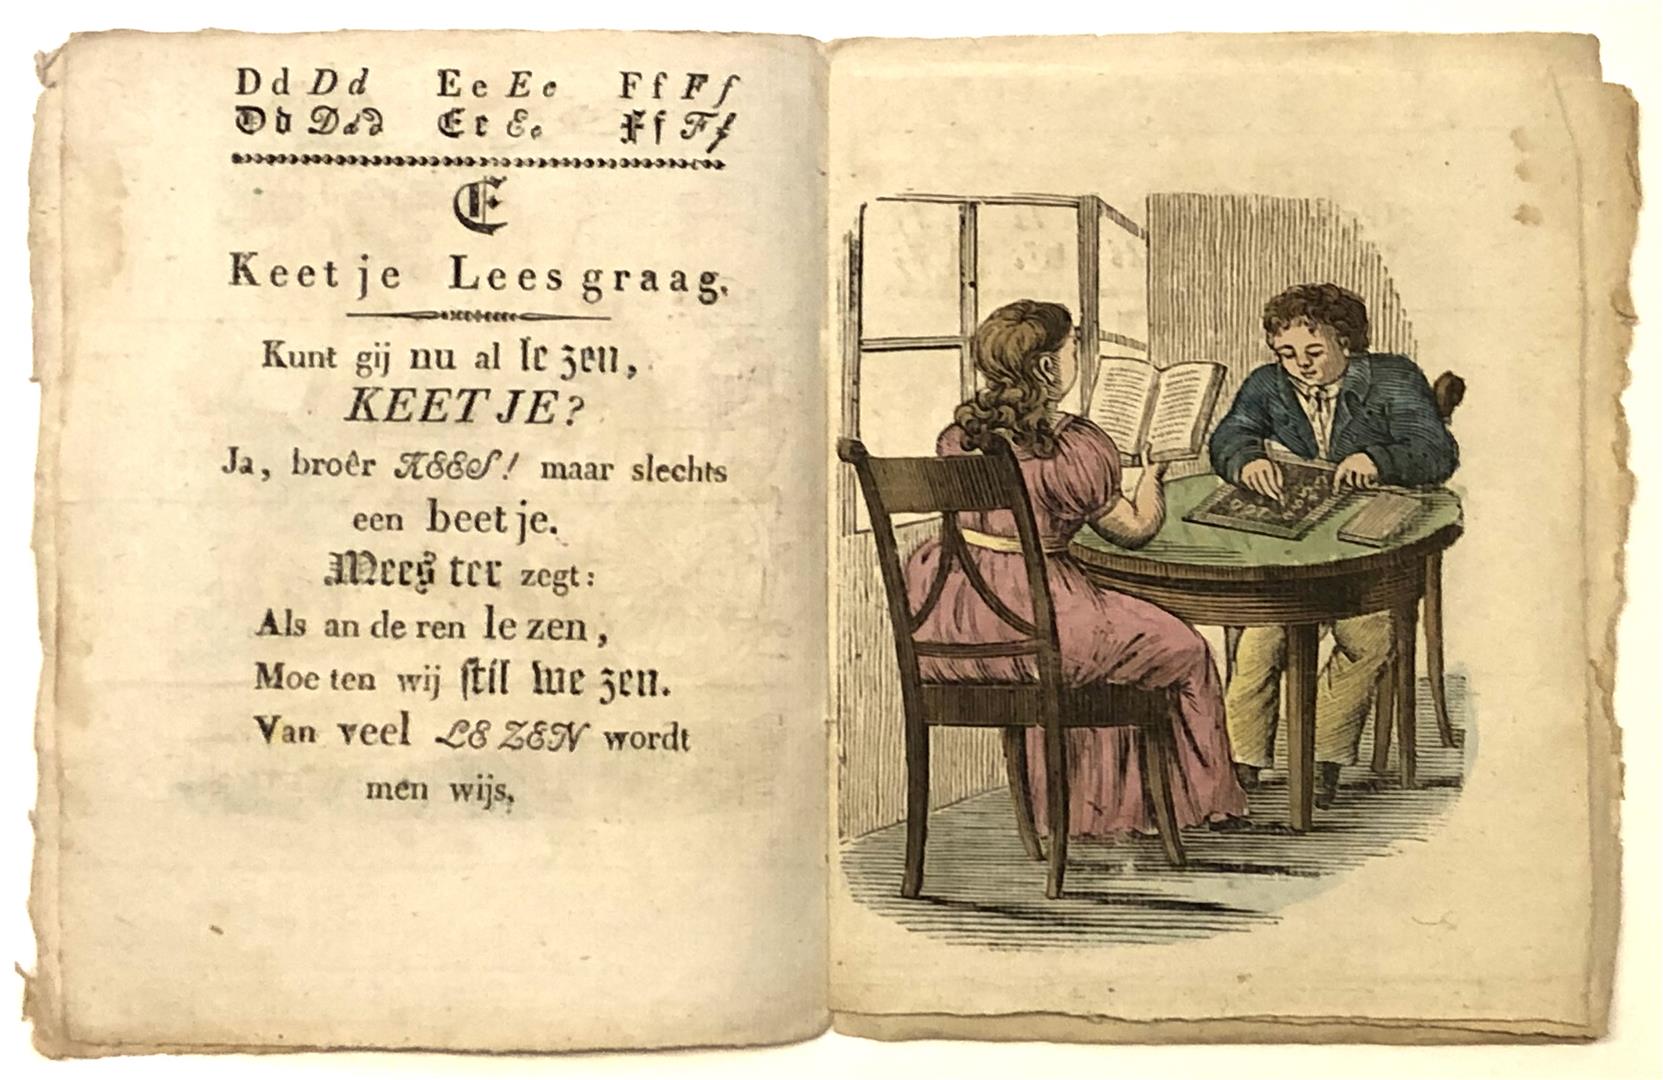 D d D d E e E e F f F f
D d D d d E e E e F f F f
E
Keetje Leesgraag.
Kunt gij nu al le zen,
KEET JE?
Ja, broêr KEES! maar slechts
een beet je.
Mees ter zegt:
Als an de ren le zen,
Moe ten wij stil we zen.
Van veel LE ZEN wordt
men wijs.